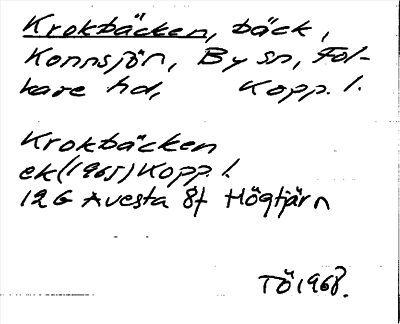 Krokbäcken, bäck,
Konnsjön, By sn, Fol-
kare hd, Kopp. l.
Krokbäcken
ek (1965) Kopp. l.
12 G Avesta 8f Högtjärn
TÖ 1968.